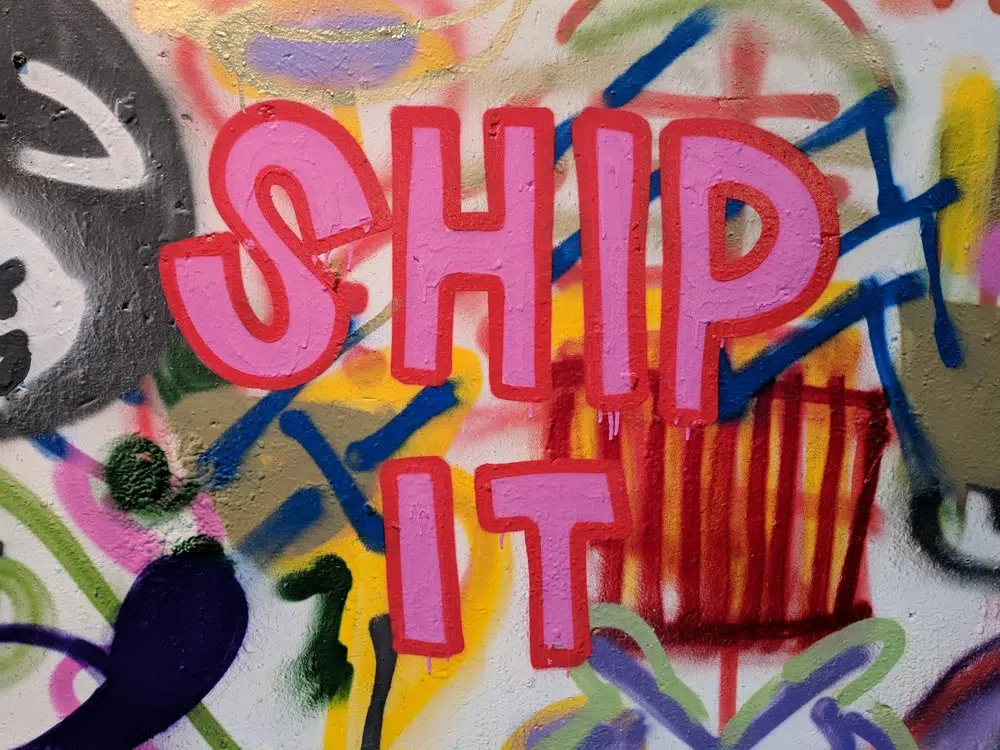 SHIP
IT